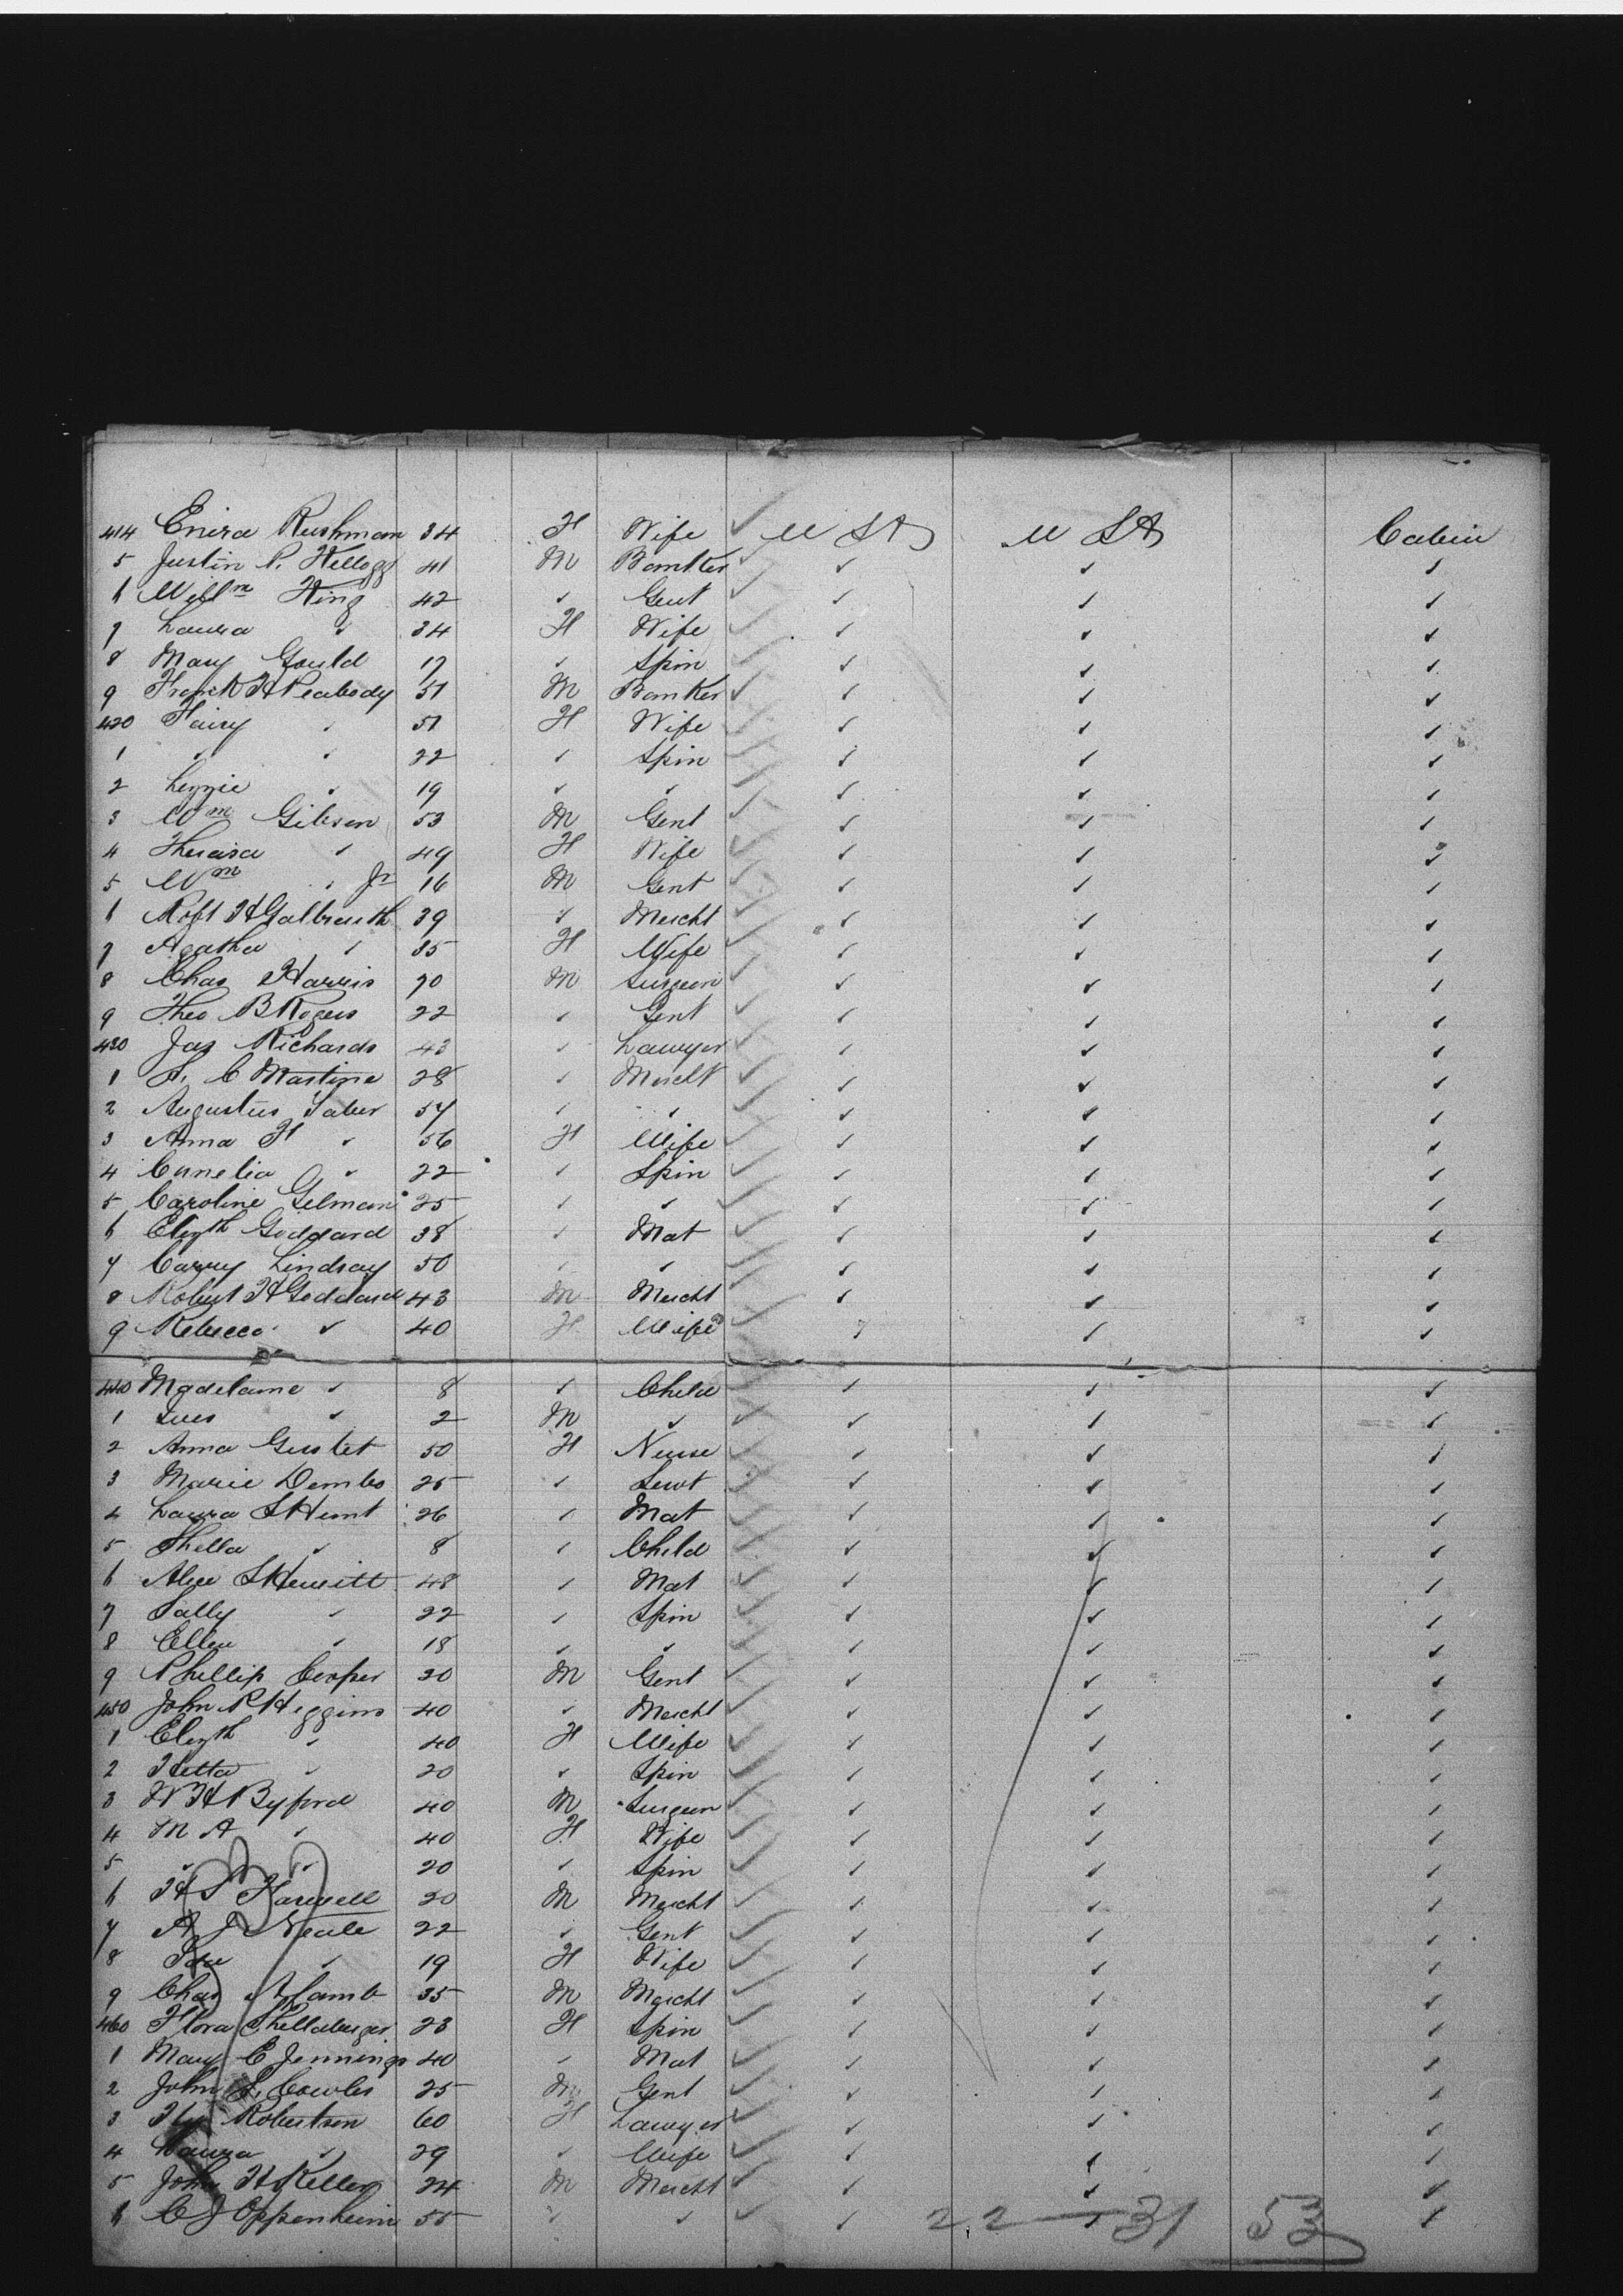 414 Enira Rushman 34 F Wife U St U St Cabin
5 Justin P. Kellogg 41 M Banker ✓ ✓ ✓
6 Willm King 42 ✓ Gent ✓ ✓ ✓
7 Laura ✓ 34 F Wife ✓ ✓ ✓
8 Mary Gould 17 ✓ Spin ✓ ✓ ✓
9 Franck H Peabody 51 M Banker ✓ ✓ ✓
420 Fairy ✓ 51 F Wife ✓ ✓ ✓
1 ✓ ✓ 22 ✓ Spin ✓ ✓ ✓
2 Lizzie ✓ 19 ✓ ✓ ✓ ✓ ✓
3 Wm Gibson 53 M Gent ✓ ✓ ✓
4 Theresa ✓ 49 F Wife ✓ ✓ ✓
5 Wm ✓ Jr 16 M Gent ✓ ✓ ✓
6 Robt H Galbraith 39 ✓ Mercht ✓ ✓ ✓
7 Agatha ✓ 35 F Wife ✓ ✓ ✓
8 Chas Harris 70 M Surgeon ✓ ✓ ✓
9 Theo B Rogers 22 ✓ Gent ✓ ✓ ✓
430 Jas Richards 43 ✓ Lawyer ✓ ✓ ✓
1 S. C Martine 28 ✓ Mercht ✓ ✓ ✓
2 Augustus Taber 57 ✓ ✓ ✓ ✓ ✓
3 Anna F ✓ 56 F Wife ✓ ✓ ✓
4 Cornelia ✓ 22 ✓ Spin ✓ ✓ ✓
5 Caroline Gilman 25 ✓ ✓ ✓ ✓ ✓
6 Elizth Goddard 38 ✓ Mat ✓ ✓ ✓
7 Carry Lindsay 50 ✓ ✓ ✓ ✓ ✓
8 Robert H Goddard 43 M Mercht ✓ ✓ ✓
9 Rebecca ✓ 40 F Wife ✓ ✓ ✓
440 Madelame ✓ 8 ✓ Child ✓ ✓ ✓
1 ✓ 2 M ✓ ✓ ✓ ✓
2 Anna 50 F Nurse ✓ ✓ ✓
3 Marie Dembo 25 ✓ Sevt ✓ ✓ ✓
4 Laura S Hunt 26 ✓ Mat ✓ ✓ ✓
5 Thella ✓ 8 ✓ Child ✓ ✓ ✓
6 Alice S Hewitt 48 ✓ Mat ✓ ✓ ✓
7 Sally ✓ 22 ✓ Spin ✓ ✓ ✓
8 Ellen ✓ 18 ✓ ✓ ✓ ✓ ✓
9 Phillip Cooper 20 M Gent ✓ ✓ ✓
450 John R Higgins 40 ✓ Mercht ✓ ✓ ✓
1 Elizth ✓ 40 F Wife ✓ ✓ ✓
2 Hetta ✓ 20 ✓ Spin ✓ ✓ ✓
3 W H Byford 40 M Surgeon ✓ ✓ ✓
4 M A ✓ 40 F Wife ✓ ✓ ✓
5 ✓ ✓ 20 ✓ Spin ✓ ✓ ✓
6 H S Farwell 20 M Mercht ✓ ✓ ✓
7 A J Neale 22 ✓ Gent ✓ ✓ ✓
8 Ida ✓ 19 F Wife ✓ ✓ ✓
9 Chas A Lamb 35 M Mercht ✓ ✓ ✓
460 Flora Shellaberger 23 F Spin ✓ ✓ ✓
1 Mary C Jennings 40 ✓ Mat ✓ ✓ ✓
2 John L. Cowles 25 M Gent ✓ ✓ ✓
3 Hy Robertson 60 F Lawyer ✓ ✓ ✓
4 Laura ✓ 29 ✓ Wife ✓ ✓ ✓
5 John H Keller 24 M Mercht ✓ ✓ ✓
6 C J Oppenheim 55 ✓ ✓ ✓ ✓ ✓
22 — 31 53